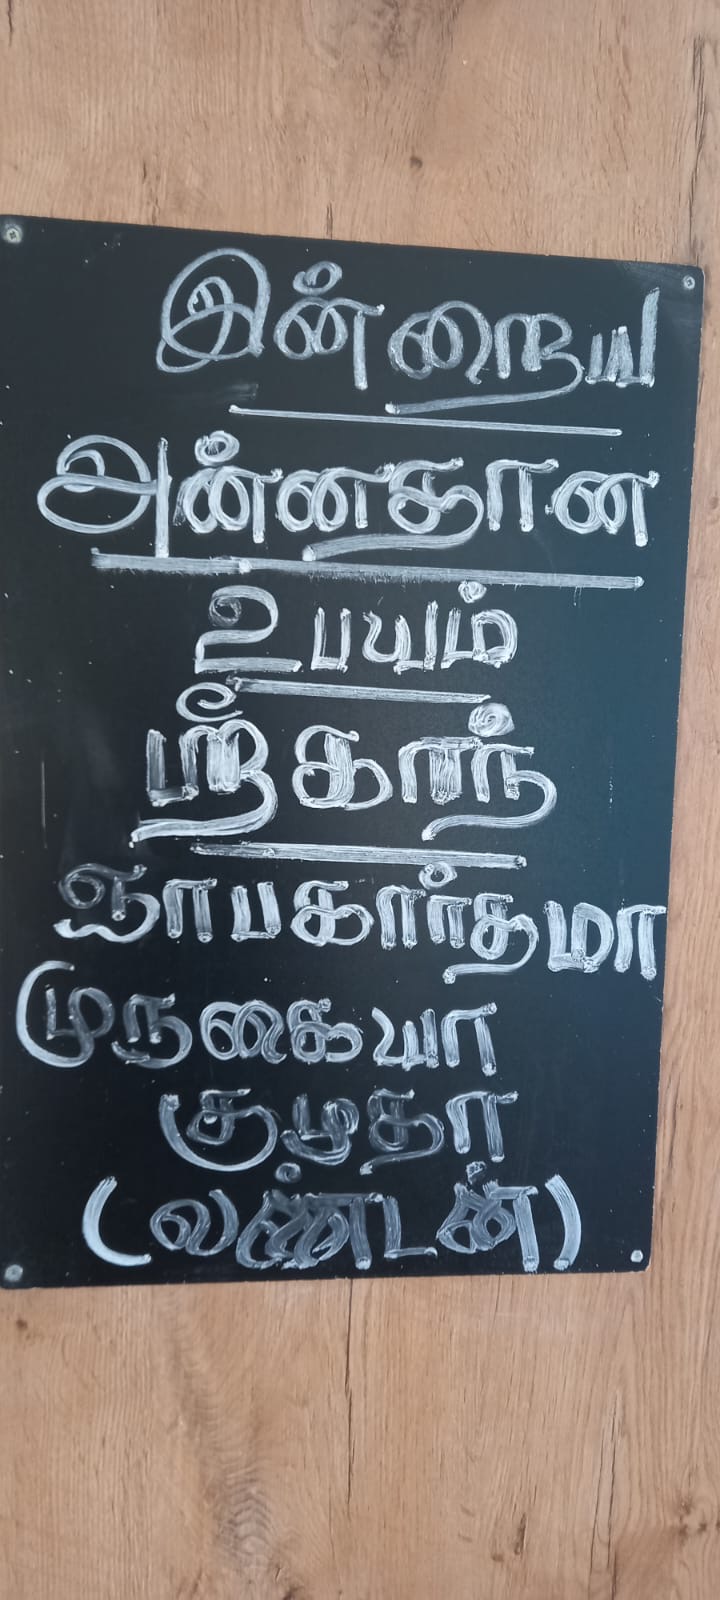 இன்றைய
அன்னதான
உபயம்
ஸ்ரீகாந்
ஞாபகார்தமா
முருகையா
குழதா
(லண்டன்)